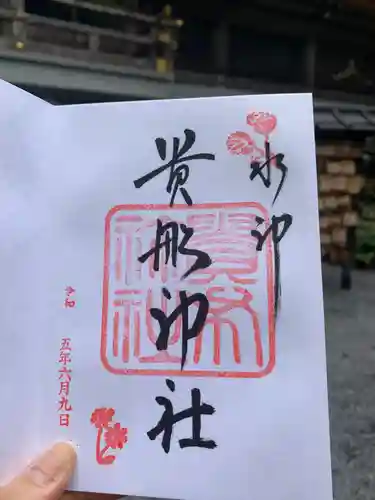 水神
貴船神社
貴船
神社
令和
五年六月九日